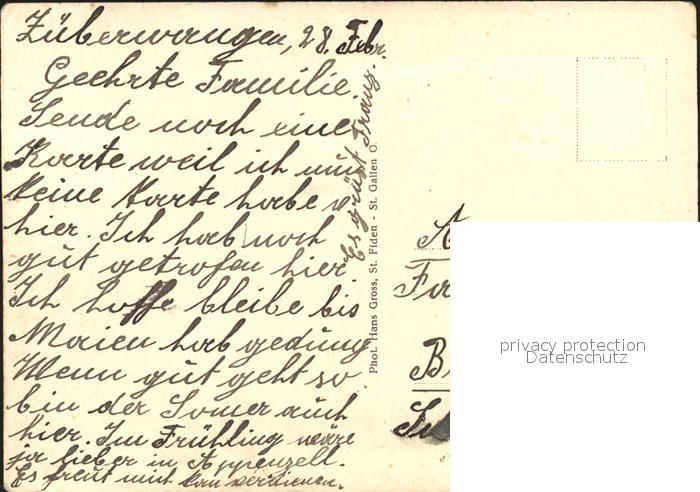 Züberwangen, 28. Febr.
Geehrte Familie.
Sende noch eine
Karte weil ich nur
keine Karte habe v
hier. Ich hab noch
gut getrofen hier
Ich hoffe bleibe bis
Maien hab gedung
Wenn gut geht so
bin der Somer auch
hier. Im Frühling wäre
ja lieber in Appenzell.
Es freut mich kan verdienen.
Es grüst Franz.
Phot. Hans Gross, St. Fiden - St. Gallen O.
A
Fa
B
privacy protection
Datenschutz